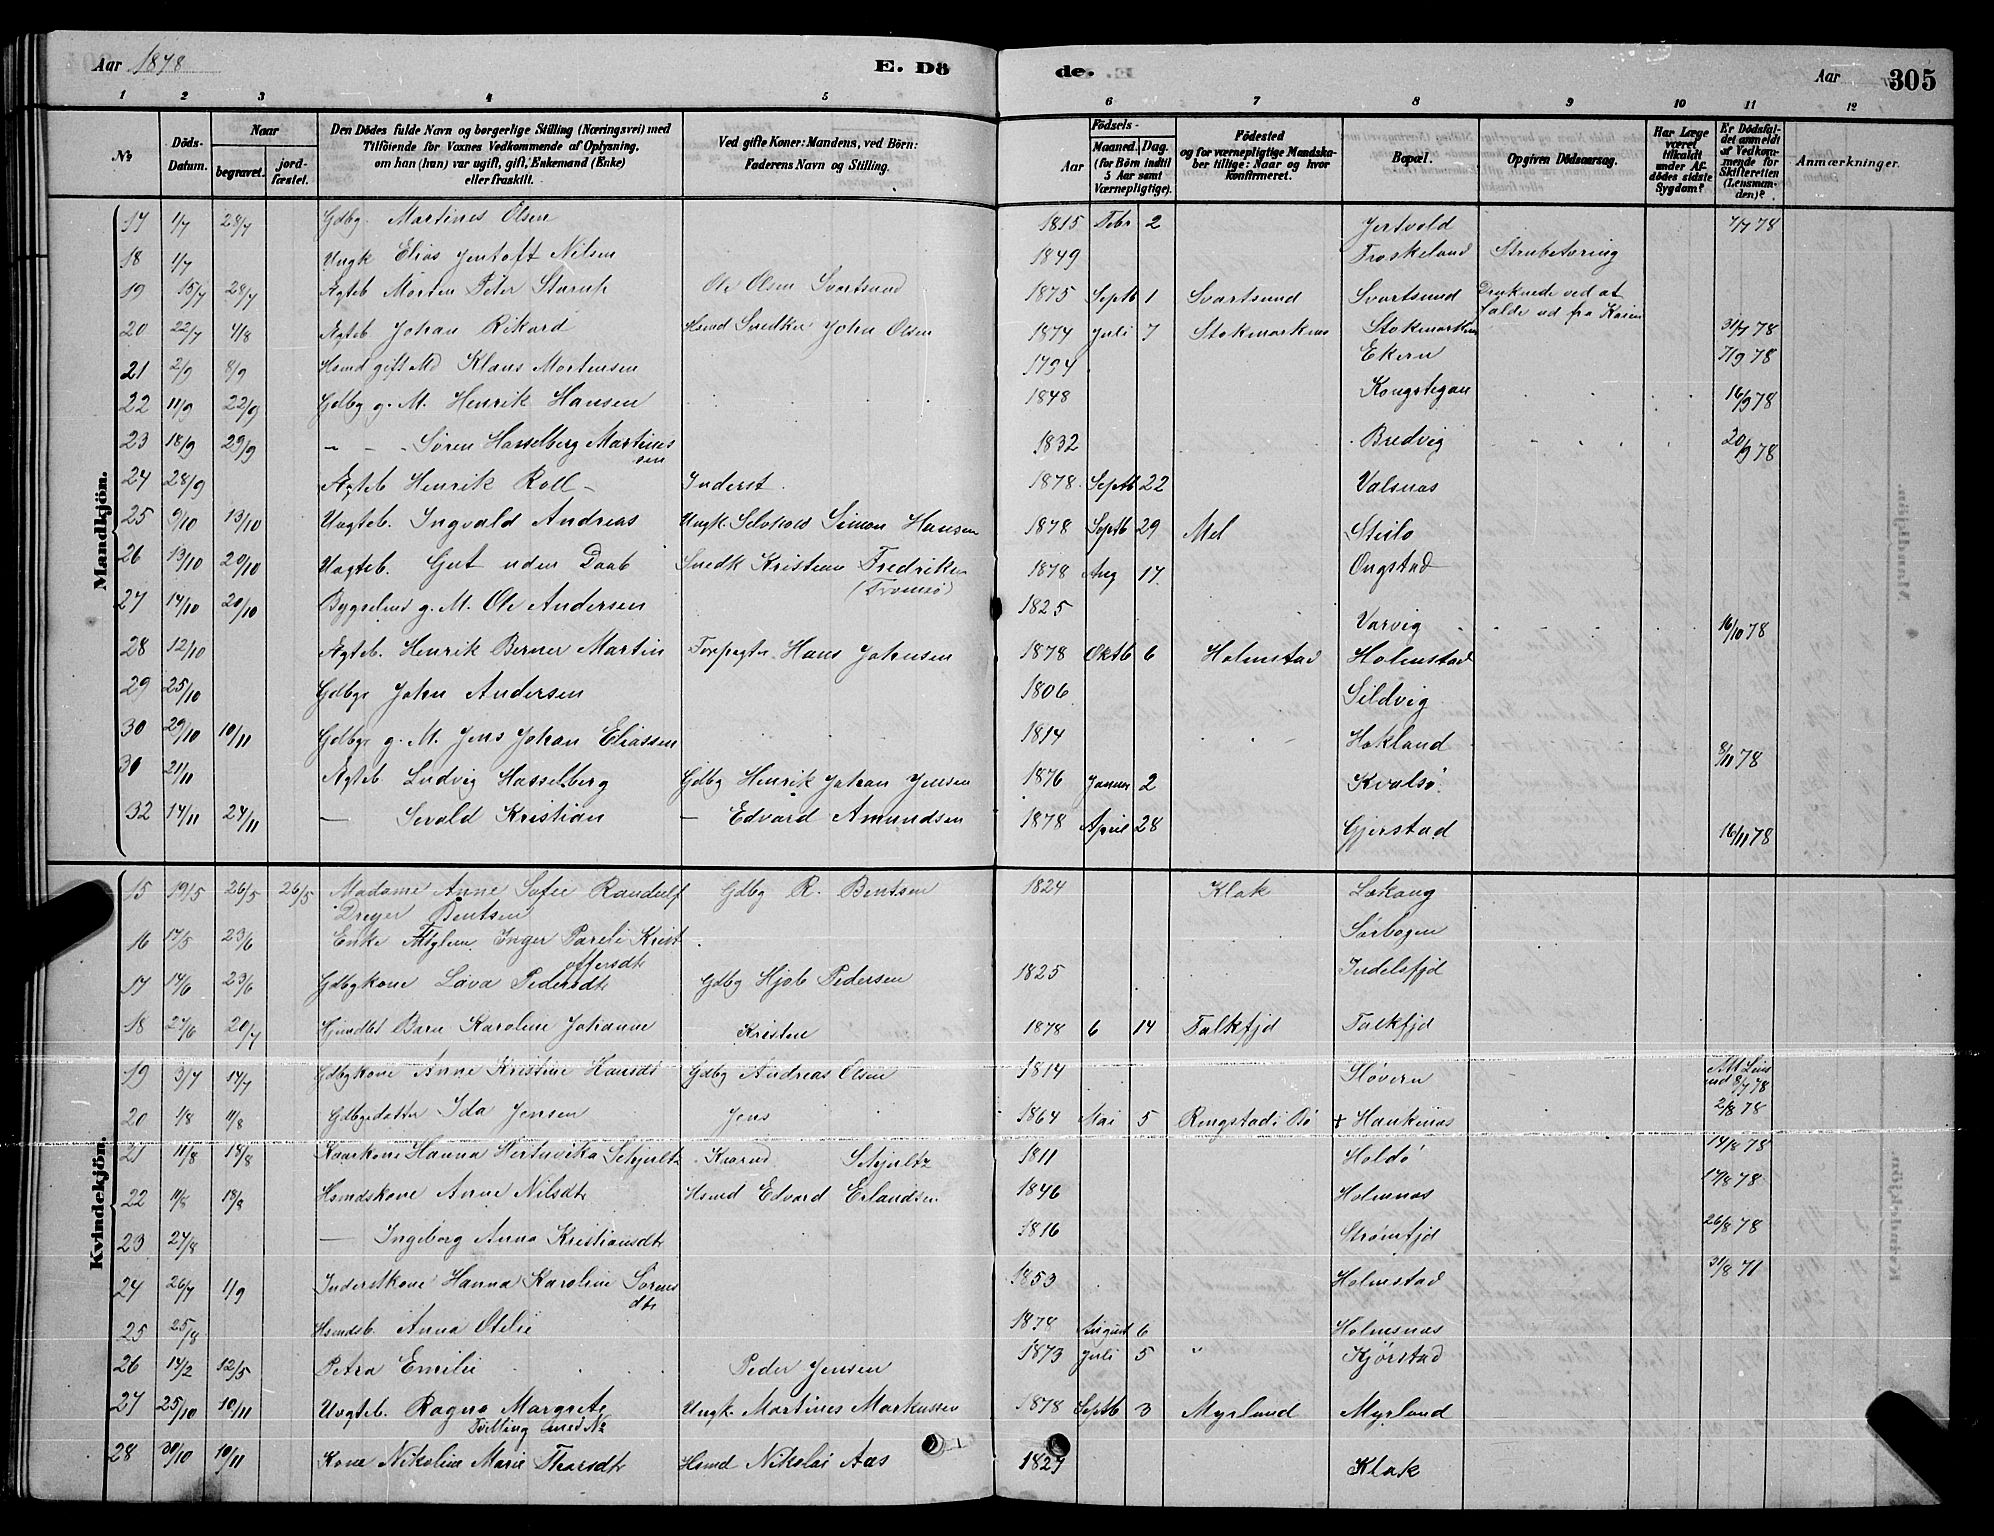 Aar 1878
E. Dö
de.
Aar
305
1 2 3 4 5 6 7 8 9 10 11 12
No
Döds-Datum.
Naar
begravet.
jord-fæstet.
Den Dödes fulde Navn og borgerlige Stilling (Næringsvei) med
Tilföiende for Voxnes Vedkommende af Oplysning,
om han (hun) var ugift, gift, Enkemand (Enke)
eller fraskilt.
Ved gifte Koner: Mandens, ved Börn:
Faderens Navn og Stilling.
Födsels-
Aar
Maaned. Dag.
(for Börn indtil
5 Aar samt
Værnepligtige).
Födested
og for værnepligtige Mandska-
ber tillige: Naar og hvor
konfirmeret.
Bopæl.
Opgiven Dödsaarsag.
Har Læge
været
tilkaldt
under Af-
dödes sidste
Sygdom?
Er Dödsfal-
det anmeldt
af Vedkom-
mende for
Skifteretten
(Lensman-
den)?
Anmærkninger.
Mandkjön.
17 1/7 28/7 Gdbg. Martines Olsen 1815 Febr 2 Jertvold 7/7 78
18 1/7 Ungk Elias Jentoft Nilsen 1849 Froskeland Strubetæring
19 15/7 28/7 Ægteb Morten Peter Storup Ole Olsen Svartsund 1875 Septb 1 Svartsund Svartsund Druknede ved at falde ud fra Kaien
20 22/7 4/8 Ægteb Johan Rikard Hsmd Snedker John Olsen 1874 Juli 7 Stokmarknes Stokmarknes 31/7 78
21 2/9 8/9 Hsmd gift Md Klaus Mortensen 1794 Ekern 7/9 78
22 11/9 22/9 Gdbg g. M. Henrik Hansen 1848 Kongstegan 16/9 78
23 18/9 29/9 - - - Søren Hasselberg Martinussen 1832 Bredvig 20/9 78
24 28/9 Ægteb Henrik Roll - Inderst. 1878 Septb 22 Valsnæs
25 9/10 13/10 Uægteb. Ingvald Andreas Ungk. Simon Hansen 1878 Septb 29 Mel Steilo
26 13/10 20/10 Uægteb. Gut uden Daab Snedk Kristian Fredriksen (Tromsø) 1878 Aug 17 Ongstad
27 14/10 20/10 Bygselmd g. M. Ole Andersen 1825 Varvig 16/10 78
28 12/10 Ægteb. Henrik Berner Martin Forpagter Hans Johnsen 1878 Oktb 6 Holmstad Holmstad
29 25/10 Gdbgr John Andersen 1806 Sildvig
30 29/10 10/11 Gdbgr g. M. Jens Johan Eliassen 1814 Hokland 8/11 78
31 21/11 Ægteb Ludvig Hasselberg Gdbg Henrik Johan Jensen 1876 Januar 2 Kvalsø
32 14/11 24/11 — Sevald Kristian — Edvard Amundsen 1878 April 28 Gjerstad 16/11 78
Kvindekjön.
15 19/5 26/5 26/5 Madame Anne Sofie Randulf Dreyer Bentsen Gdbg R. Bentsen 1824 Klak Lekang
16 17/5 23/6 Enke Inger Pareli Kristoffersdtr Sørbogen
17 14/6 23/6 Gdbgkone Lava Pedersdtr Gdbg Hjob Pedersen 1825 Indelsfjd
18 27/6 20/7 Barn Karoline Johanne Kristen 1878 6 14 Falkfjd Falkfjd
19 3/7 14/7 Gdbgkone Anne Kristine Hansdt Gdbg Andreas Olsen 1814 Støvern 8/7 78
20 1/8 11/8 Gdbgdatter Ida Jensen Jens 1864 Mai 5 Ringstad i Bø + Haukenæs 2/8 78
21 11/8 18/8 Kaarkone Hanna Hertuvika Schjultz Kaarmd Schjultz 1811 Holdø 14/8 78
22 11/8 18/8 Hsmdskone Anne Nilsdtr Hsmd Edvard Erlandsen 1846 Holmnæs 17/8 78
23 27/8 — Ingeborg Anna Kristiansdtr 1816 Strømfjd 26/8 78
24 26/7 1/9 Inderstkone Hanna Karoline Sørensdtr 1853 Holmstad 31/8 71
25 25/8 Hsmdsb. Anna Otelie 1878 August 6 Holmsnæs
26 14/2 12/5 Petra Emilie Peder Jensen 1873 Juli 5 " Kjørstad
27 25/10 10/11 Uægteb. Ragna Margrete Tvilling med No Ungk. Martines Markussen 1878 Septb 3 Myrland Myrland
28 30/10 10/11 Kone Nikoline Marie Thorsdtr Hsmd Nikolai Aas 1829 Klak